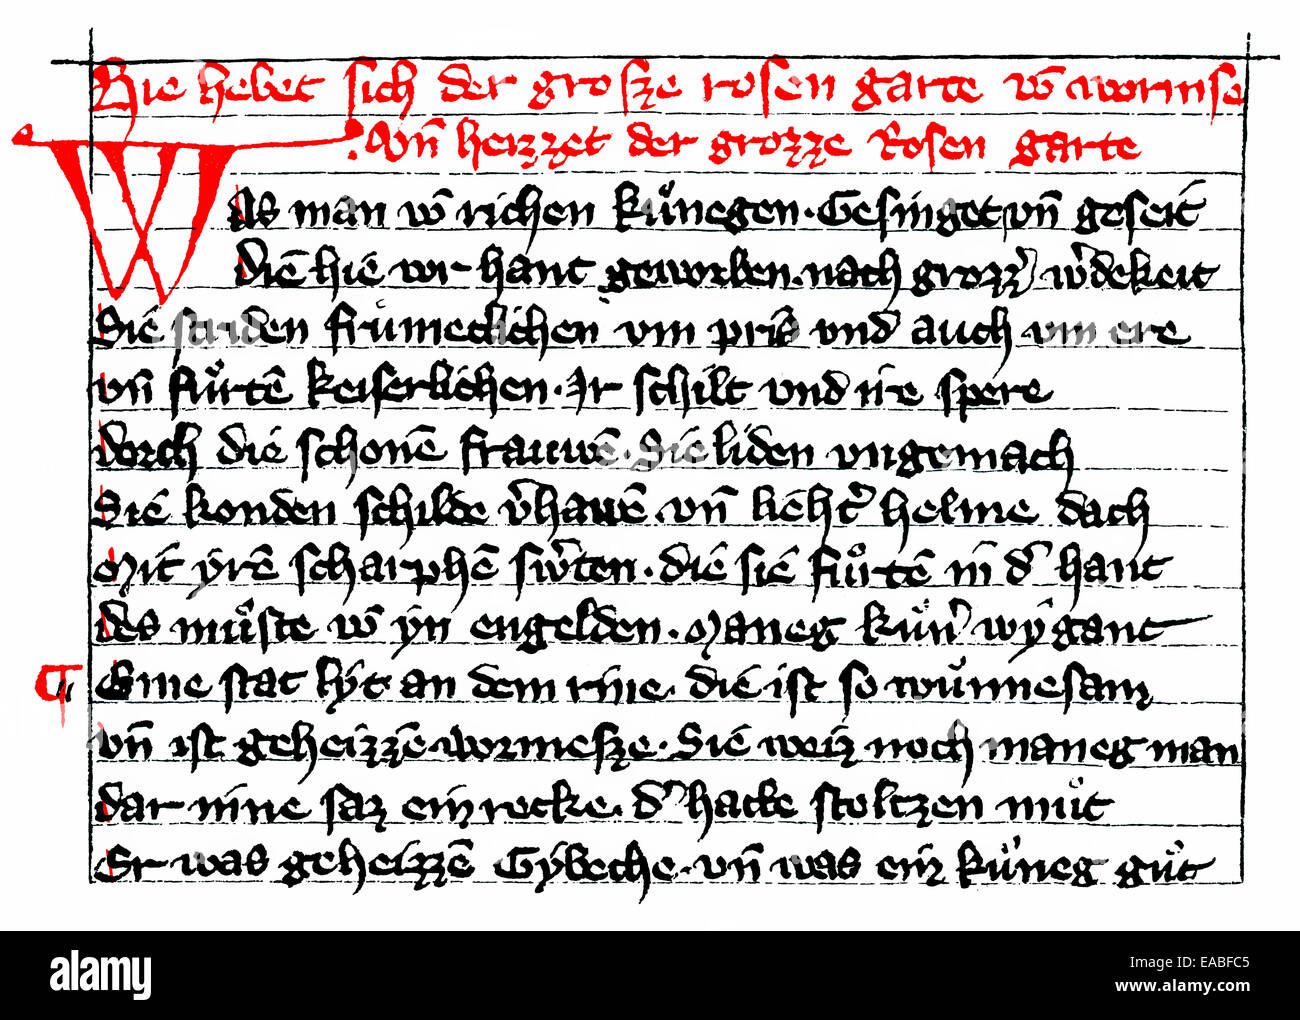 Hie hebet sich der grosze rosen garte vō wormse
Vn̄ heizzet der grozze Rosen garte
Was man vō richen kuͤnegen · Gesinget vn̄ geseit
Die hie vor hant geworben · nach grozz͛ w͛dekeit
Sie striden frumeclichen vm pris vnd auch vm ere
vn̄ fuͤrtē keiserlichen · Ir schilt vnd ire spere
dorch die schonē frauwē · Sie liden vngemach
Sie konden schilde v͛hauwē · vn̄ lieht͛ helme dach
Mit yrē scharphē sw͛ten · die sie fuͤrtē in d͛ hant
des muͤste vō yn engelden · Maneg kuͤn͛ wygant
¶ Eine stat lyt an dem rine · die ist so wuͤnnesam
vn̄ ist geheizzē wormesze · Sie weiz noch maneg man
dar inne saz ein recke · d͛ hatte stoltzen muͤt
Er was geheizzē Gybeche · vn̄ was ein kuͤneg guͤt
alamy
Image ID: EABFC5
www.alamy.com